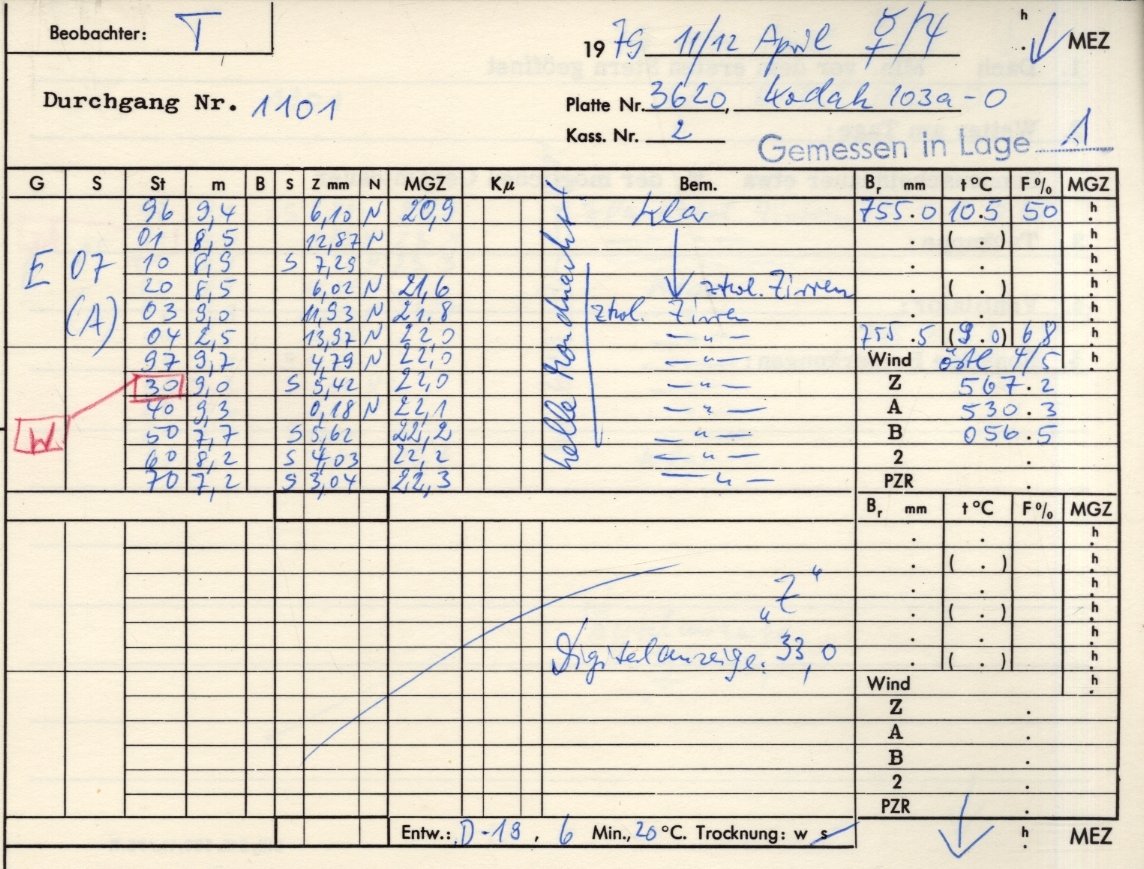 Beobachter: T
1979 11/12 April ♀/4 h MEZ
Durchgang Nr. 1101
Platte Nr. 3620, Kodak 103a-O
Kass. Nr. 2
Gemessen in Lage 1
G S St m B S Z mm N MGZ Kμ Bem. Br mm t°C F% MGZ
96 9,4 6,10 N 20,9 klar 755.0 10.5 50 h
01 8,5 12,87 N ( . ) h
E 07 10 8,9 S 7,29 . h
20 8,5 6,02 N 21,6 ztwl. Zirren ( . ) h
(A) 03 9,0 11,93 N 21,8 ztwl. Zirren . h
04 2,5 13,97 N 22,0 – " – 755.5 (9.0) 68 h
97 9,7 4,79 N 22,0 – " – Wind östl 4/5 h
30 9,0 S 5,42 22,0 – " – Z 567.2
40 9,3 0,18 N 22,1 – " – A 530.3
W 50 7,7 S 5,62 22,2 – " – B 056.5
60 8,2 S 4,03 22,2 – " – 2 .
70 7,2 S 3,04 22,3 – " – PZR .
helle Mondnacht!
Br mm t°C F% MGZ
. h
. ( . ) h
. h
"Z" . ( . ) h
. h
Digitalanzeige: 33,0 . ( . ) h
Wind h
Z .
A .
B .
2 .
PZR .
Entw.: D-19, 6 Min., 20°C. Trocknung: w s h MEZ